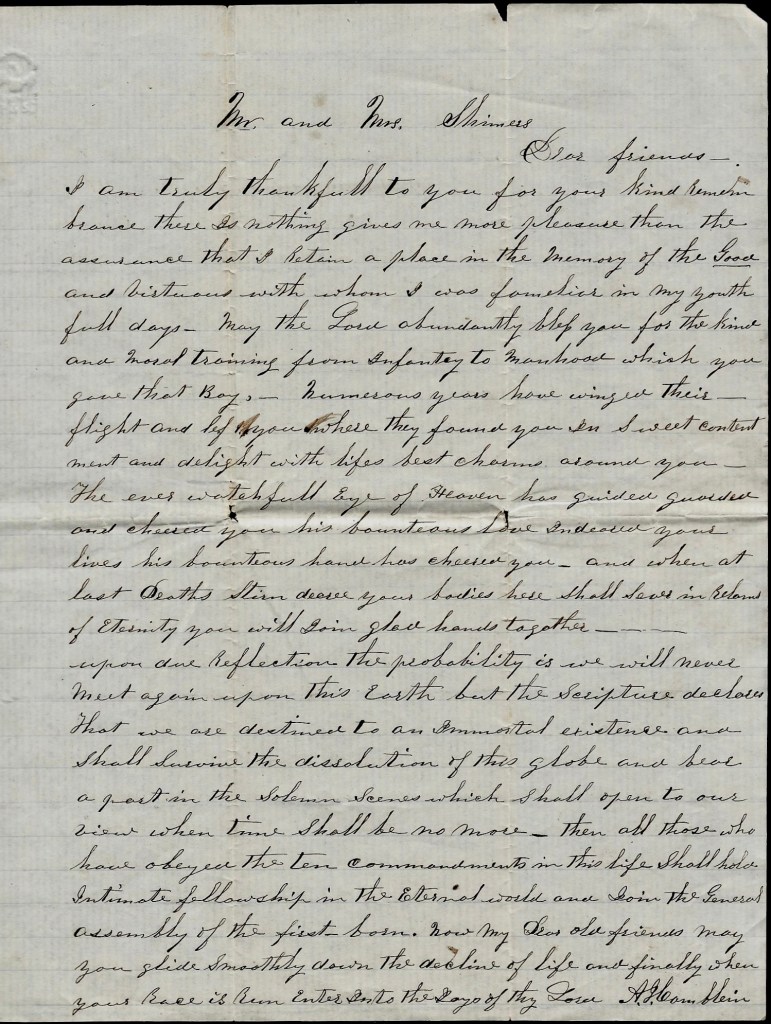 Mr. and Mrs. Shimers
Dear friends —
I am truly thankfull to you for your kind Remem
brance there Is nothing gives me more pleasure than the
assurance that I Retain a place in the Memory of the Good
and Virtuous with whom I was familiar in my youth
full days — May the Lord abundantly bless you for the kind
and Moral training from Infantcy to Manhood which you
gave that Boy, — Numerous years have winged their —
flight and left you where they found you In Sweet content
ment and delight with lifes best charms around you —
The ever watchfull Eye of Heaven has guided guarded
and cheered you his bounteous love Indeared your
lives his bounteous hand has cheered you — and when at
last Deaths Stirn decree your bodies here Shall Sever in
of Eternity you will Join glad hands together — — —
upon due Reflection the probability is we will never
Meet again upon this Earth but the Scripture declares
That we are destined to an Immortal existence and
Shall Survive the dissolution of this globe and bear
a part in the Solemn Scenes which Shall open to our
view when time Shall be no more — then all those who
have obeyed the ten commandments in this life Shall hold
Intimate fellowship in the Eternal world and Join the General
assembly of the first-born. Now My Dear old friends may
you glide Smoothly down the decline of life and finally when
your Race is Run Enter Into the Joys of thy Lord A. Hamblein